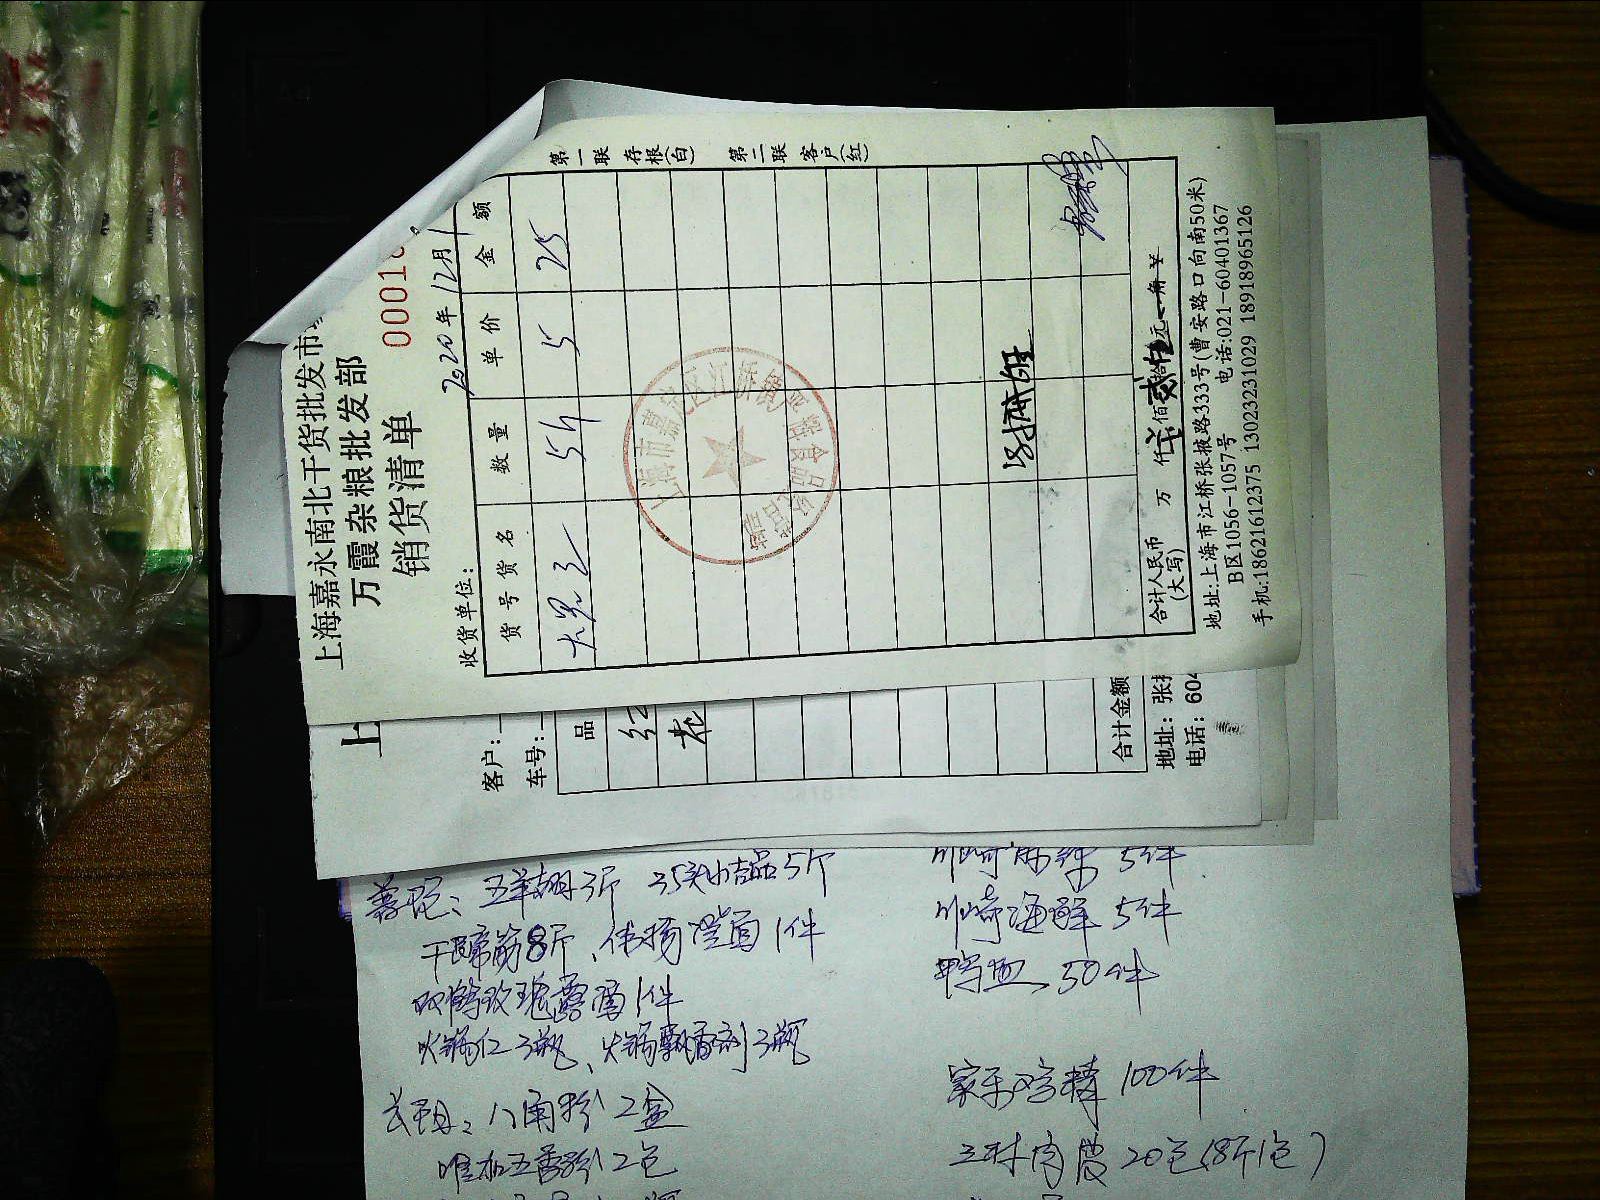 上海嘉永南北干货批发市场
万霞杂粮批发部
销货清单
0001
2020年12月1
收货单位：
货号货名 数量 单价 金额
大黑豆 5斤 5 25
合计人民币(大写) 万 仟 佰贰拾伍元 角 ¥
地址:上海市江桥张掖路333号(曹安路口向南50米)
B区1056-1057号 电话:021-60401367
手机:18621612375 13023231029 18918965126
第一联 存根(白) 第二联 客户(红)
上
客户:
车号:
品
红
花
合计金额
地址: 张掖
电话: 604
五羊胡3斤 35头小吉品5斤
干蹄筋8斤、伟杨澄面1件
双鹤玫瑰露酒1件
火锅红3瓶、火锅飘香剂3瓶
八角粉2盒
味加五香粉12包
5件
川崎海鲜 5件
鸭血、50件
家乐鸡精 100件
三林肉皮 20包(8斤1包)